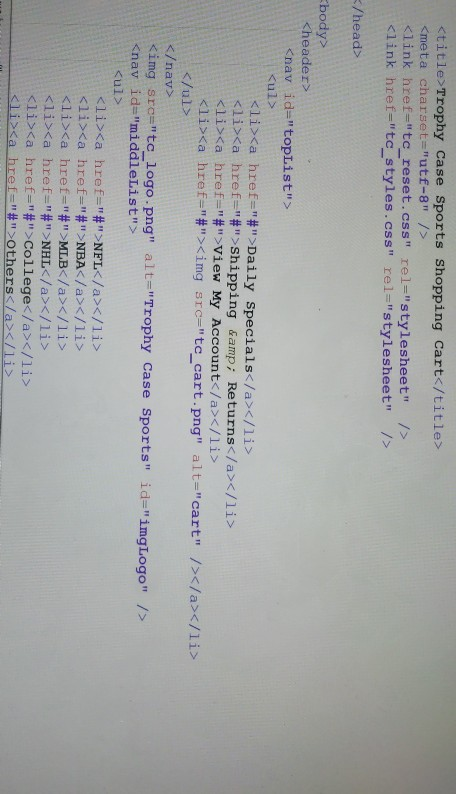 <title>Trophy Case Sports Shopping Cart</title>
<meta charset="utf-8" />
<link href="tc_reset.css" rel="stylesheet" />
<link href="tc_styles.css" rel="stylesheet" />
</head>
<body>
<header>
<nav id="topList">
<ul>
<li><a href="#">Daily Specials</a></li>
<li><a href="#">Shipping &amp; Returns</a></li>
<li><a href="#">View My Account</a></li>
<li><a href="#"><img src="tc_cart.png" alt="cart" /></a></li>
</ul>
</nav>
<img src="tc_logo.png" alt="Trophy Case Sports" id="imgLogo" />
<nav id="middleList">
<ul>
<li><a href="#">NFL</a></li>
<li><a href="#">NBA</a></li>
<li><a href="#">MLB</a></li>
<li><a href="#">NHL</a></li>
<li><a href="#">College</a></li>
<li><a href="#">Others</a></li>